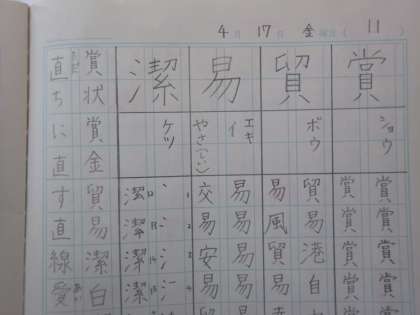 4月17日 金曜日( 11 )
賞
ショウ
賞賞賞賞
賞賞賞賞
貿
ボウ
貿易港自
易風貿易
易
エキ
イ
やさ(しい)
易易易易
交易安易
潔
ケツ
潔潔潔潔
賞状賞金貿易潔白
直ちに直す直線愛